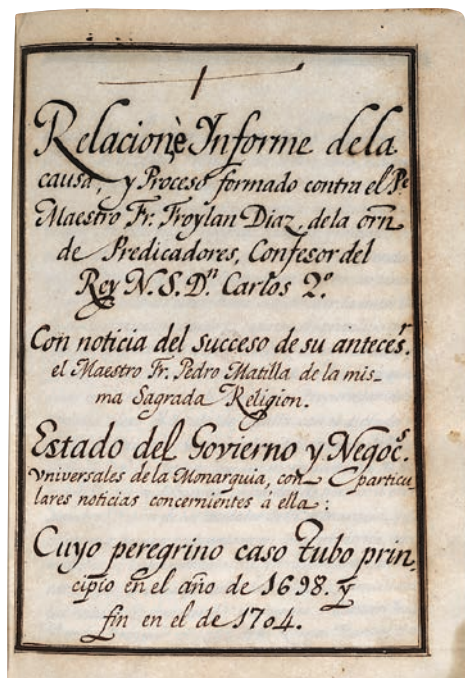 Relacion, è Informe dela
causa, y Proceso formado contra el Pe
Maestro Fr. Froylan Diaz, dela orn
de Predicadores, Confesor del
Rey N. S. Dn. Carlos 2.º
Con noticia del succeso de su anteces.r
el Maestro Fr. Pedro Matilla de la mis-
ma Sagrada Religion.
Estado del Govierno y Negoc.s
Vniversales de la Monarquia, con particu-
lares noticias concernientes á ella:
Cuyo peregrino caso tubo prin-
cipio en el año de 1698. y
fin en el de 1704.